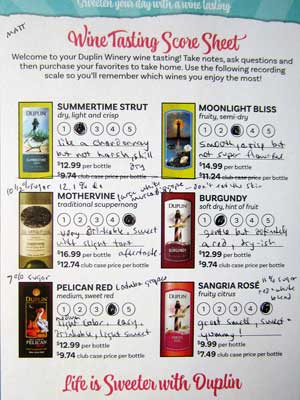 Sweeten your day with a wine tasting
MATT
Wine Tasting Score Sheet
Welcome to your Duplin Winery wine tasting! Take notes, ask questions and
then purchase your favorites to take home. Use the following recording
scale so you'll remember which wines you enjoy the most!
SUMMERTIME STRUT
dry, light and crisp
1 3 4 5
like a chardonnay
but not harsh, still
dry
$12.99 per bottle
$9.74 club case price per bottle
MOONLIGHT BLISS
fruity, semi-dry
1 2 4 5
smooth, but
not super flavorful
$14.99 per bottle
$11.24 club case price per bottle
10 1/2 % sugar
12.1%
large white
muscadine grape - don't eat the skin
MOTHERVINE
traditional scuppernong
1 2 3 5
very drinkable, sweet
w/ slight tart
aftertaste
$16.99 per bottle
$12.74 club case price per bottle
BURGUNDY
soft, dry, hint of fruit
1 2 3 4 5
gentle but definitely
a red, dry-ish
$12.99 per bottle
$9.74 club case price per bottle
7% sugar
PELICAN RED
Catawba grapes
medium, sweet red
1 2 3 5
medium
light color, easy,
drinkable, light sweet
$12.99 per bottle
$9.74 club case price per bottle
SANGRIA ROSE
11% sugar
red + white
blend
fruity citrus
1 2 3 4
great smell, sweet +
yummy!
$9.99 per bottle
$7.49 club case price per bottle
Life is Sweeter with Duplin